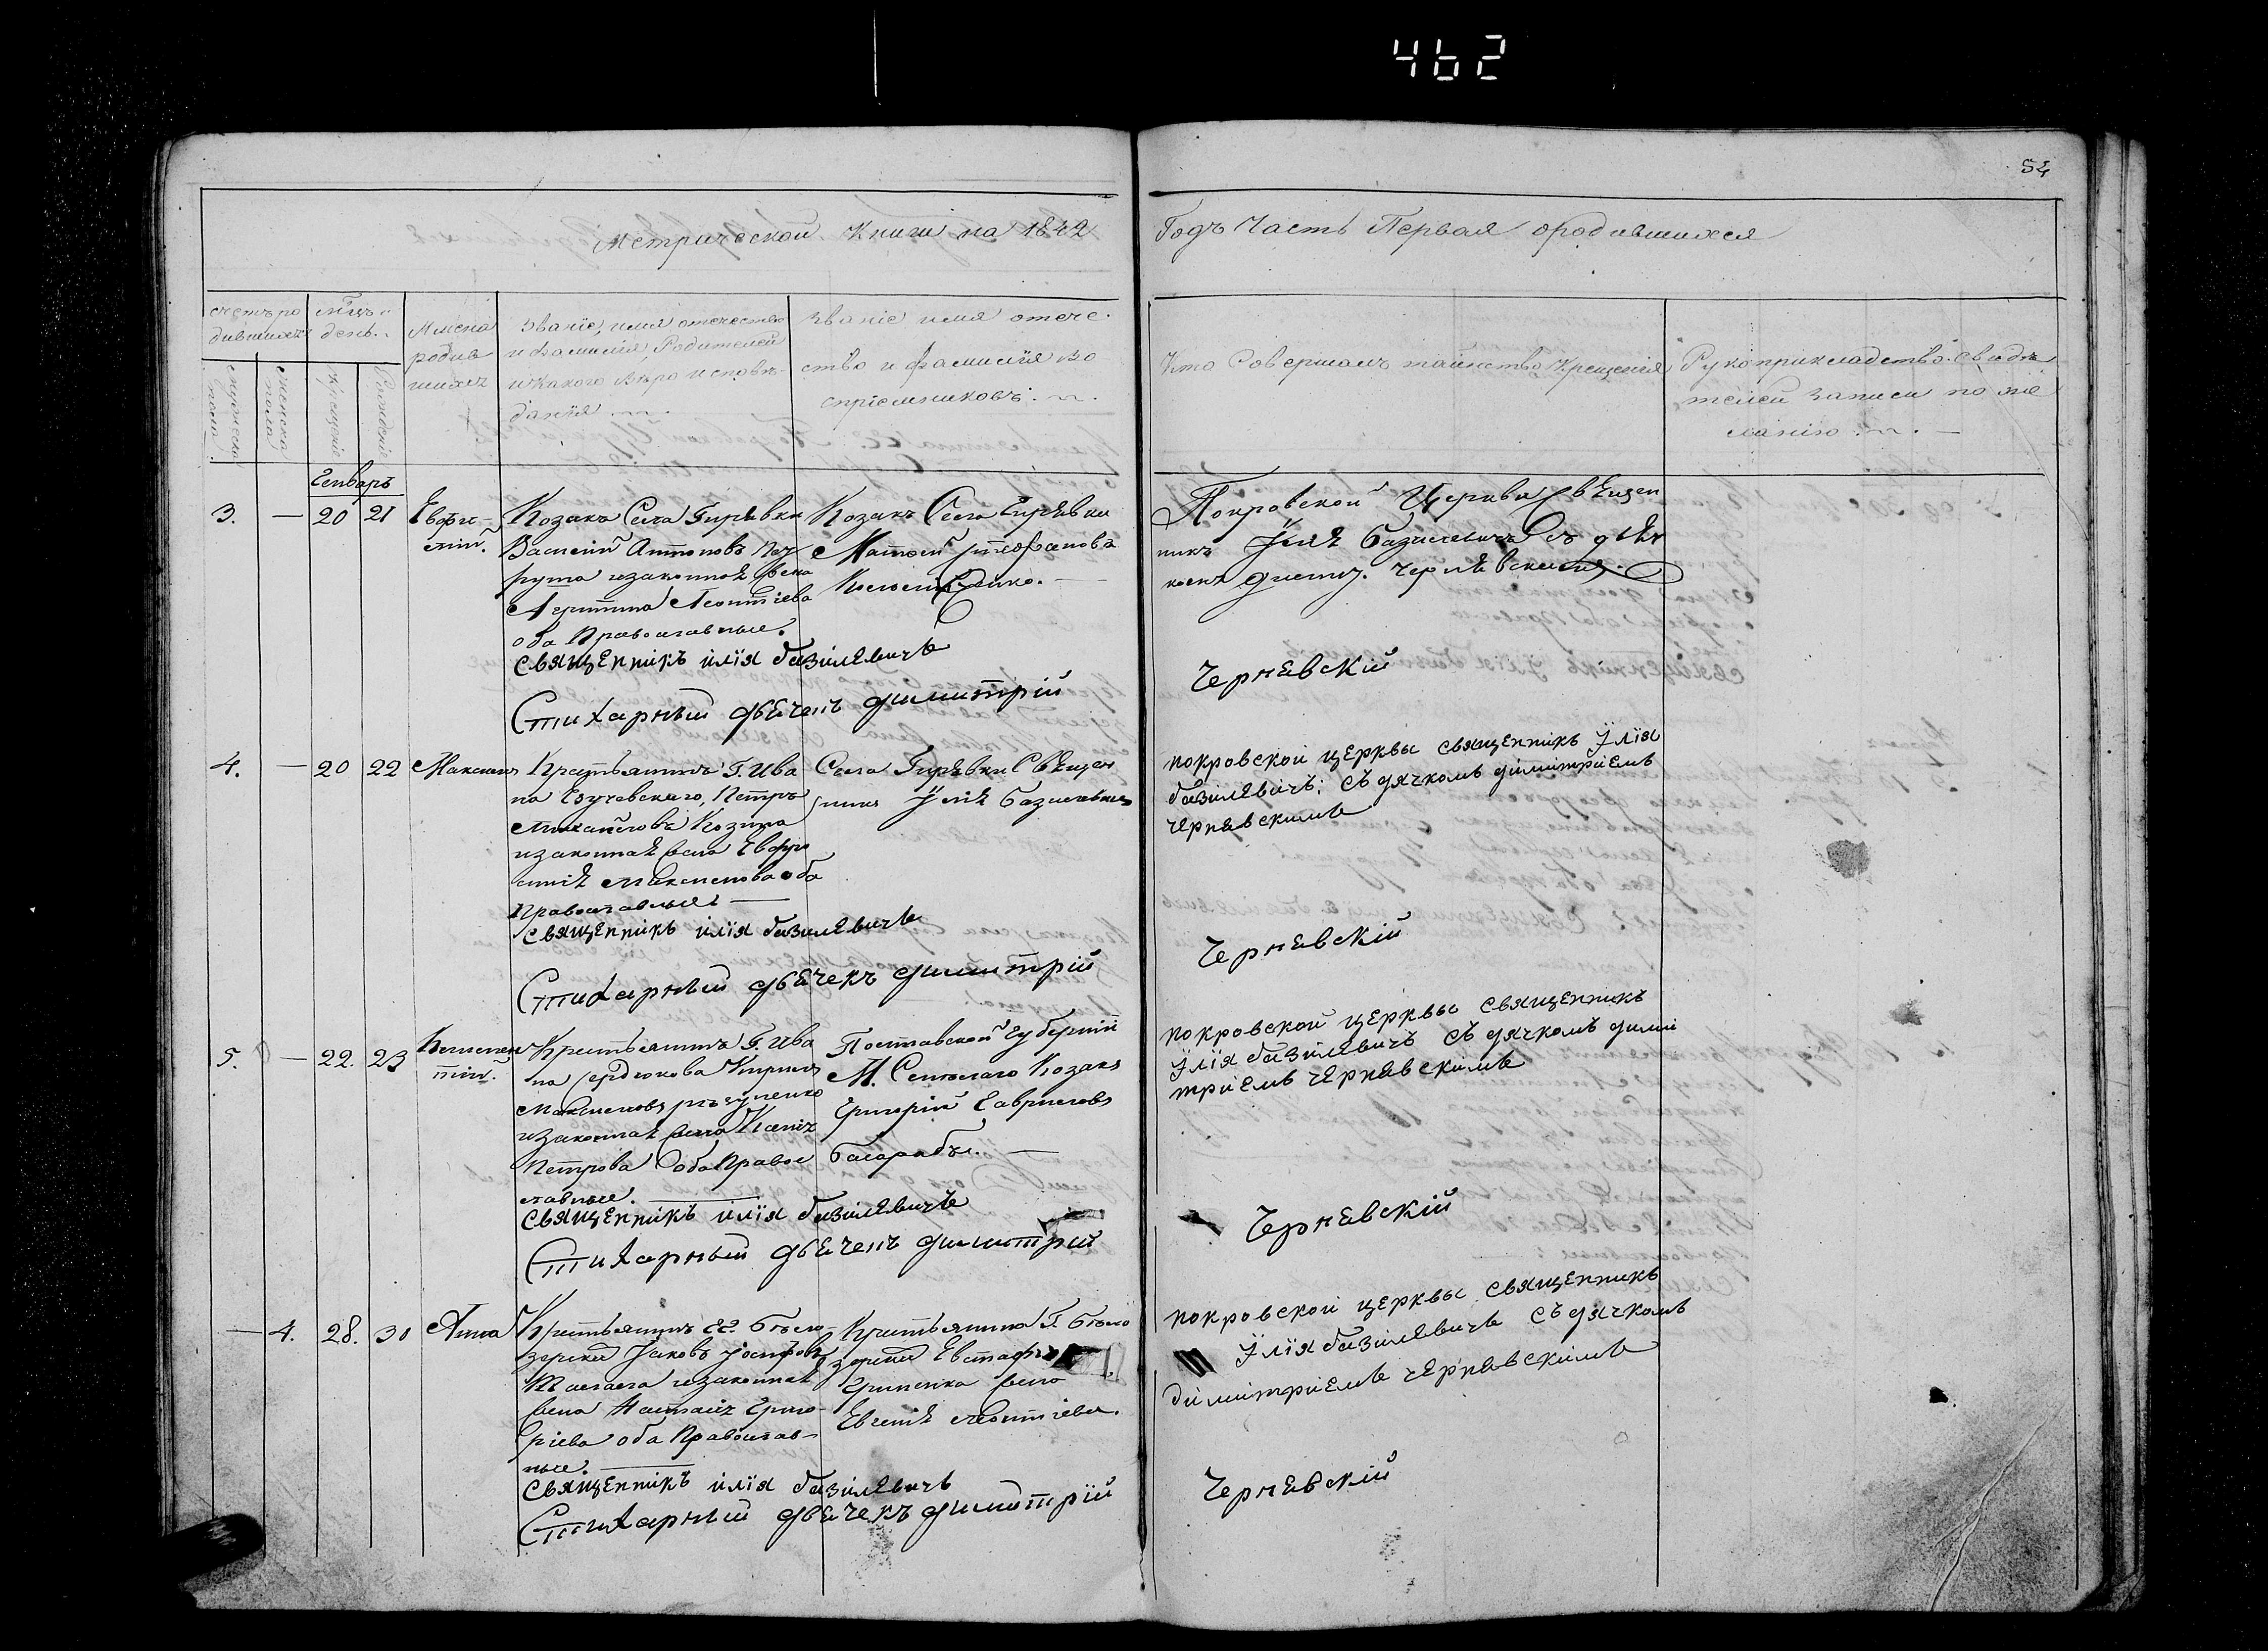 462
54
Метрической Книги на 1842
Годъ Часть Первая ородившихся
счетъ ро
дившихъ
мѣц. и
день.
мужеска
пола
женска
пола
крещеніе
Рожденіе
Имена
родив
шихъ
Званіе, имя отечество
и фамилія, Родителей
и какого вѣро исповѣ-
данія
Званіе имя отече-
ство и фамилія во
спріемниковъ.
Кто Совершалъ таинство крещенія
Рукоприкладство свидѣ
телей записи по же
ланію
Генварь
3. — 20 21 Евфи-
мій.
Козакъ Села Гирѣвки
Василій Антоновъ
изаконная жена
Леонтіева
оба Православные.
священникъ илія базилевичъ
Стихарный дьячекъ димитрій
Козакъ Села Гирѣвки
Матфей Стефановъ
Покровской Церкви Священ
никъ Илія Базилевичъ Съ дьяч
комъ Димит. Чернявскимъ.
Чернявскій
4. — 20 22 Максимъ
Крестьянинъ Г. Ива
на Петръ
Михайловъ Козира
изаконная жена Евфро
синія Максимова оба
Православные —
священникъ илія базилевичъ
Стихарный дьячекъ димитрій
Села Гирѣвки Священ
никъ Илія Базилевичъ
покровской церквы священникъ Ілія
базилевичъ; съ дячкомъ димитріемъ
чернявскимъ
Чернявскій
5. — 22. 23
Крестьянинъ Г. Ива
на Сердюкова Кирилъ
Максимовъ
изаконная жена Ксенія
Петрова оба Правос
лавные.
священникъ илія базилевичъ
Стихарный дьячекъ димитрій
Полтавской Губерніи
М. Козакъ
Григорій Гавриловъ
Басарабъ. —
покровской церквы священникъ
Ілія базилевичъ съ дячкомъ дими
тріемъ чернявскимъ
Чернявскій
— 4. 28. 30 Анна
Крестьянинъ Г. Бѣло-
зерскій Яковъ Іосифовъ
изаконная
жена Настасія Григо-
ріева оба Православ-
ные.
священникъ илія базилевичъ
Стихарный дьячекъ димитрій
Крестьянина Г. Бѣло
зерскій
жена
Евгенія Леонтіева.
покровской церквы священникъ
Ілія базилевичъ съ дячкомъ
димитріемъ чернявскимъ
Чернявскій